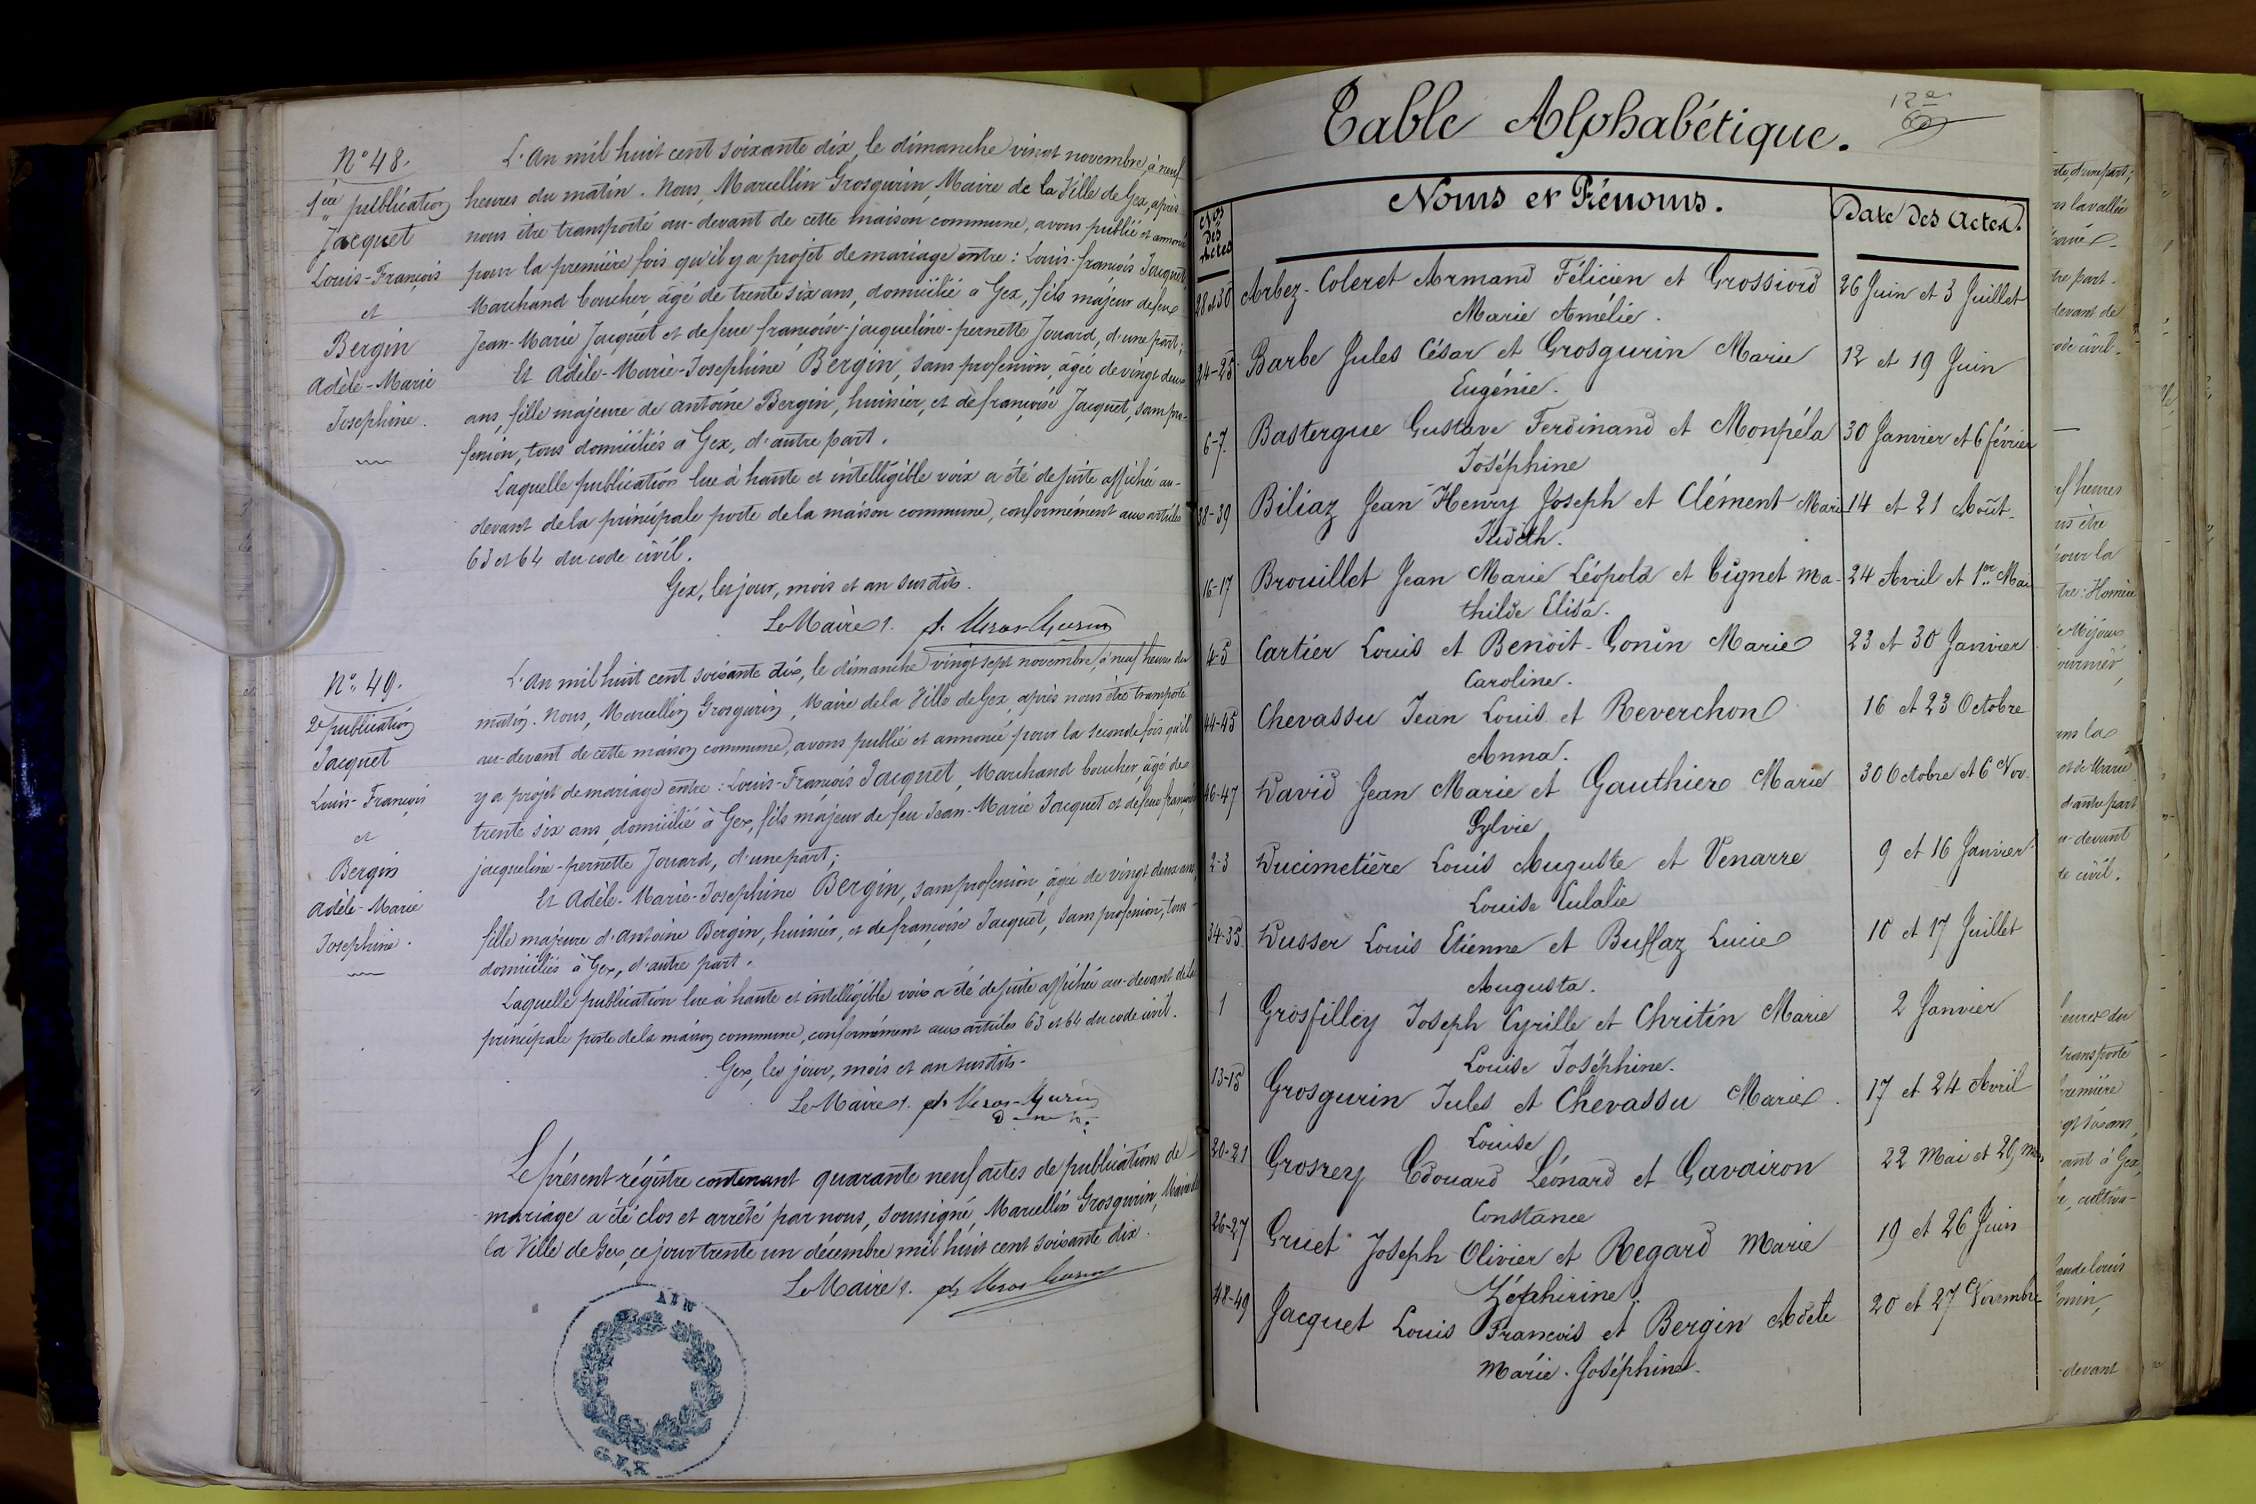 N° 48.
1ère publication
Jacquet
Louis-François
et
Bergin
Adèle-Marie
Josephine.
L'an mil huit cent soixante dix, le dimanche vingt novembre, à neuf
heures du matin. Nous, Marcellin Grosgurin, Maire de la Ville de Gex, après
nous être transporté au-devant de cette maison commune, avons publié et annoncé
pour la première fois qu'il y a projet de mariage entre : Louis-françois Jacquet
Marchand boucher, âgé de trente six ans, domicilié à Gex, fils majeur de feu
Jean-Marie Jacquet et de feue françoise-jacqueline-pernette Jouard, d'une part;
Et Adèle-Marie-Josephine Bergin, sans profession, âgée de vingt deux
ans, fille majeure de antoine Bergin, huissier, et de françoise Jacquet, sans pro-
fession, tous domiciliés à Gex, d'autre part.
Laquelle publication lue à haute et intelligible voix a été de suite affichée au-
devant de la principale porte de la maison commune, conformément aux articles
63 et 64 du code civil.
Gex, les jour, mois et an susdits.
Le Maire,
N° 49.
2e publication
Jacquet
Louis-François
et
Bergin
Adèle-Marie
Josephine.
L'an mil huit cent soixante dix, le dimanche vingt sept novembre, à neuf heures du
matin. Nous, Marcellin Grosgurin, Maire de la Ville de Gex, après nous être transporté
au-devant de cette maison commune, avons publié et annoncé pour la seconde fois qu'il
y a projet de mariage entre : Louis-François Jacquet, Marchand boucher, âgé de
trente six ans, domicilié à Gex, fils majeur de feu Jean-Marie Jacquet et de feue françoise
jacqueline-pernette Jouard, d'une part;
Et Adèle-Marie-Josephine Bergin, sans profession, âgée de vingt deux ans,
fille majeure d'Antoine Bergin, huissier, et de françoise Jacquet, sans profession, tous
domiciliés à Gex, d'autre part.
Laquelle publication lue à haute et intelligible voix a été de suite affichée au-devant de la
principale porte de la maison commune, conformément aux articles 63 et 64 du code civil.
Gex, les jour, mois et an susdits.
Le Maire,
Le présent régistre contenant quarante neuf actes de publications de
mariage a été clos et arrêté par nous, soussigné, Marcellin Grosgurin, Maire de
la Ville de Gex, ce jour trente un décembre mil huit cent soixante dix.
Le Maire,
AIN
GEX
Table Alphabétique.
Nos des Actes
Noms et Prénoms.
Date des Actes.
28 et 30 Arbez-Coleret Armand Félicien et Grossiord 26 Juin et 3 Juillet
Marie Amélie.
24-25 Barbe Jules César et Grosgurin Marie 12 et 19 Juin
Eugénie.
6-7. Bastergue Gustave Ferdinand et Monpéla 30 Janvier et 6 février
Joséphine
38-39 Biliaz Jean Henry Joseph et Clément Marie 14 et 21 Août.
Judith.
16-17 Brouillet Jean Marie Léopold et Tignet Ma- 24 Avril et 1er Mai
thilde Elisa.
4-5 Cartier Louis et Benoit-Gonin Marie 23 et 30 Janvier
Caroline.
44-45 Chevassu Jean Louis et Reverchon 16 et 23 Octobre
Anna.
46-47 David Jean Marie et Gauthier Marie 30 Octobre et 6 Nov.
Sylvie
2-3 Ducimetière Louis Auguste et Venarre 9 et 16 Janvier
Louise Eulalie
34-35 Dusser Louis Etienne et Buffaz Lucie 10 et 17 Juillet
Augusta.
1 Grosfilley Joseph Cyrille et Chritin Marie 2 Janvier
Louise Joséphine.
13-15 Grosgurin Jules et Chevassu Marie 17 et 24 Avril
Louise
20-21 Grosrey Edouard Léonard et Gavairon 22 Mai et 29 Mai
Constance
26-27 Gruet Joseph Olivier et Regard Marie 19 et 26 Juin
Zéphirine.
48-49 Jacquet Louis François et Bergin Adèle 20 et 27 Novembre
Marie-Joséphine.